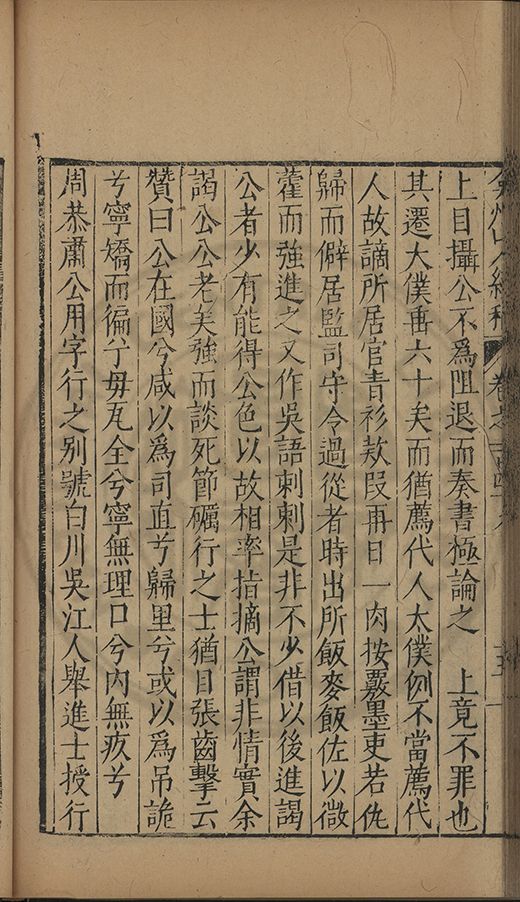 弇州山人續稿 卷之一百四十八
上目攝公不為阻退而奏書極論之 上竟不罪也
其遷太僕垂六十矣而猶薦代人太僕例不當薦代
人故謫所居官青衫欵段再日一肉按覈墨吏若仇
歸而僻居監司守令過從者時出所飯麥飯佐以微
藿而強進之又作吳語刺刺是非不少借以後進謁
公者少有能得公色以故相率指摘公謂非情實余
謁公公老矣強而談死節礪行之士猶目張齒擊云
贊曰公在國兮咸以為司直兮歸里兮或以為吊詭
兮寧矯而徧兮毋瓦全兮寧無理口兮內無疚兮
周恭肅公用字行之別號白川吳江人舉進士授行